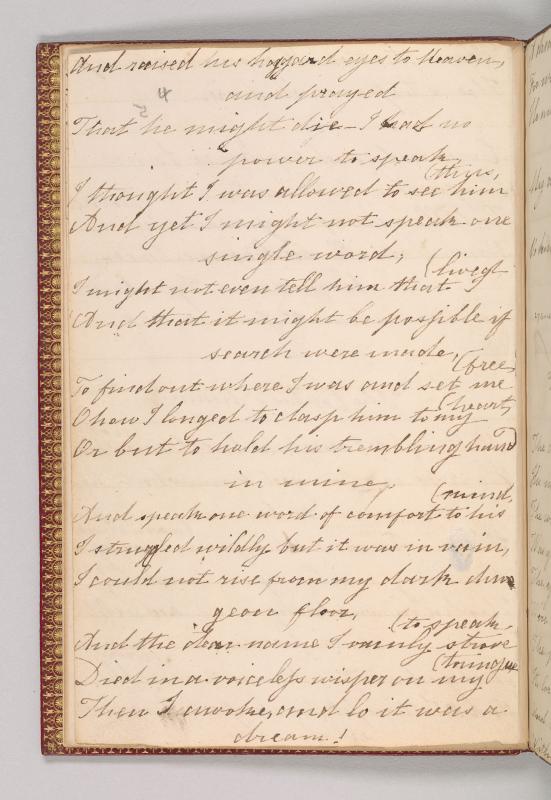 And raised his haggard eyes to Heaven,
and prayed
4
2
That he might die – I had no
power to speak,
(thus,
I thought I was allowed to see him
And yet I might not speak one
single word;
(lived
I might not even tell him that
And that it might be possible if
search were made,
(free,
To find out where I was and set me
(heart,
O how I longed to clasp him to my
Or but to hold his trembling hand
in mine,
(mind,
And speak one word of comfort to his
I struggled wildly but it was in vain,
I could not rise from my dark dun
geon floor,
(to speak,
And the dear name I vainly strove
(tongue
Died in a voiceless wisper on my
Then I awoke, and lo it was a
dream!